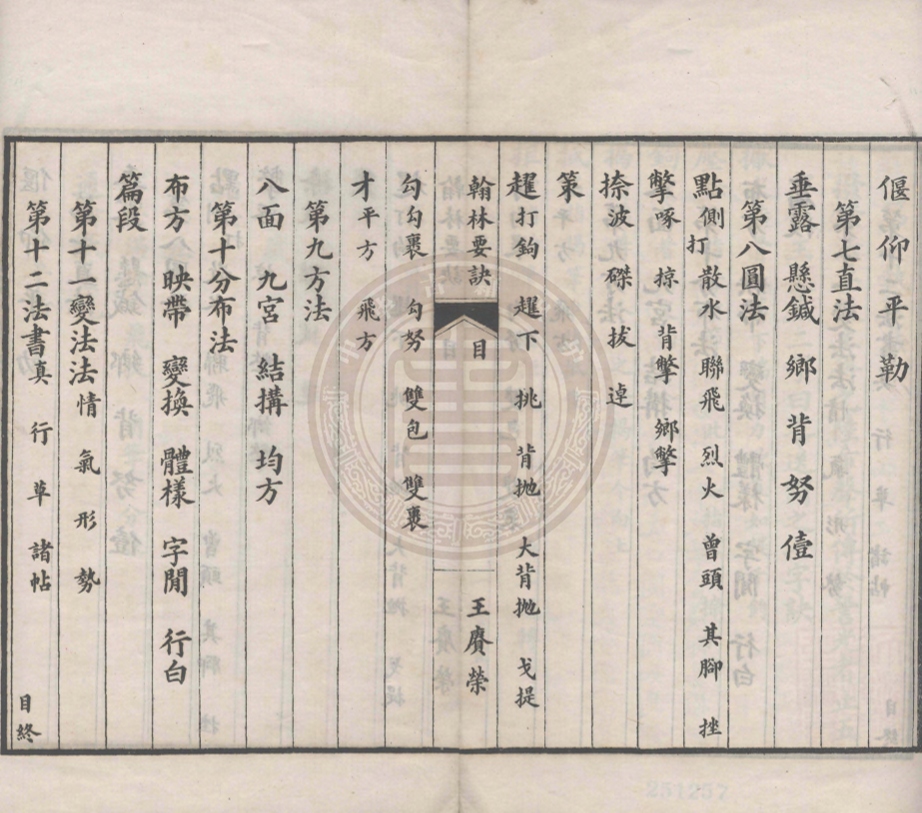 偃 仰 平 勒
第七直法
垂露 懸鍼 鄉 背 努 僼
第八圓法
點側打 散水 聯飛 烈火 曾頭 其腳 挫
撆啄 掠 背撆 鄉撆
捺波 磔 拔 逴
策
趯打鉤 趯下 挑 背拋 大背拋 戈捉
翰林要訣 目 王賡榮
勾勾裹 勾努 雙包 雙裹
才平方 飛方
第九方法
八面 九宮 結搆 均方
第十分布法
布方 映帶 變換 體樣 字閒 行白
篇段
第十一變法法情 氣 形 勢
第十二法書真 行 草 諸帖
目終
251257